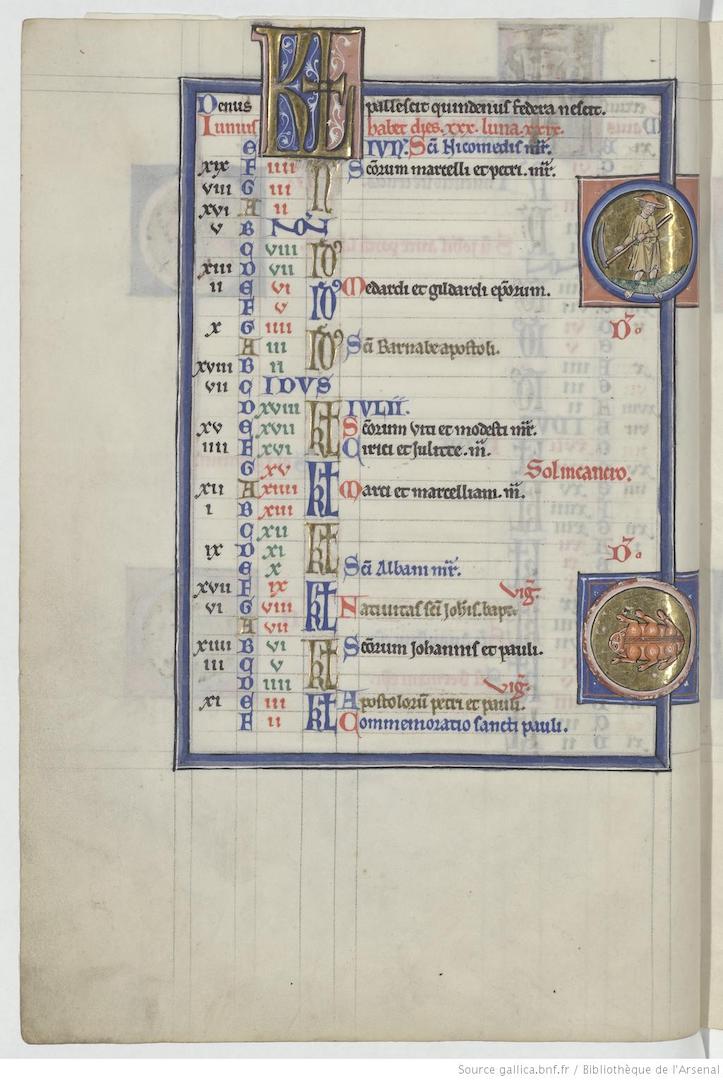 Denus KL pallescit quindenus federa nescit.
Iunius habet dies. xxx. luna. xxix.
E IVN. Scī Nicomedis mr̄.
xix F iiii N Scōrum marcelli et petri. mr̄.
viii G iii
xvi A ii
v B NON
C viii Id
xiii D vii
ii E vi Id Medardi et gildardi ep̄orum.
F v
x G iiii Id D.
A iii Scī Barnabe apostoli.
xviii B ii
vii C IDVS
D xviii kł IVLII.
xv E xvii Scōrum Viti et modesti mr̄.
iiii F xvi Cirici et Julitte. m̄.
G xv kł Sol in cancro.
xii A xiiii Marci et marcelliani. m̄.
i B xiii
C xii kł
ix D xi D.
E x Scī Albani mr̄.
xvii F ix kł viḡ.
vi G viii Natiuitas scī Joh̄is. bapt.
A vii
xiiii B vi kł Scōrum Johannis et pauli.
iii C v
D iiii viḡ.
xi E iii kł Apostolorū petri et pauli.
F ii Commemoratio sancti pauli.
Source gallica.bnf.fr / Bibliothèque de l'Arsenal